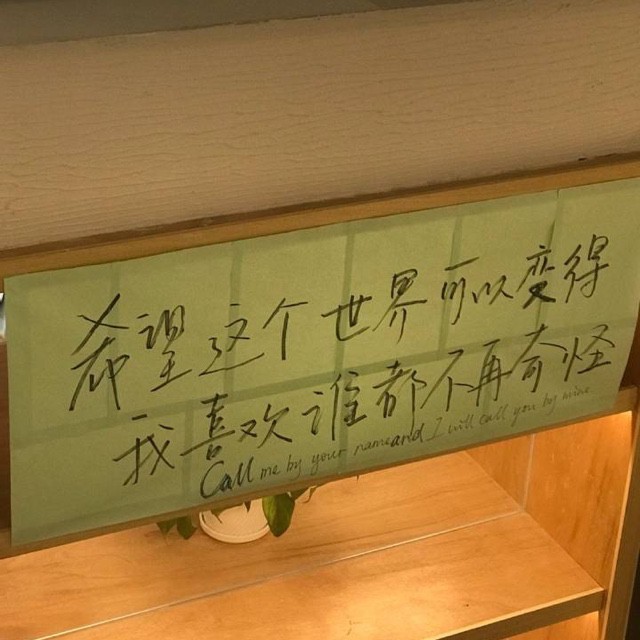 希望这个世界可以变得
我喜欢谁都不再奇怪
Call me by your name and I will call you by mine